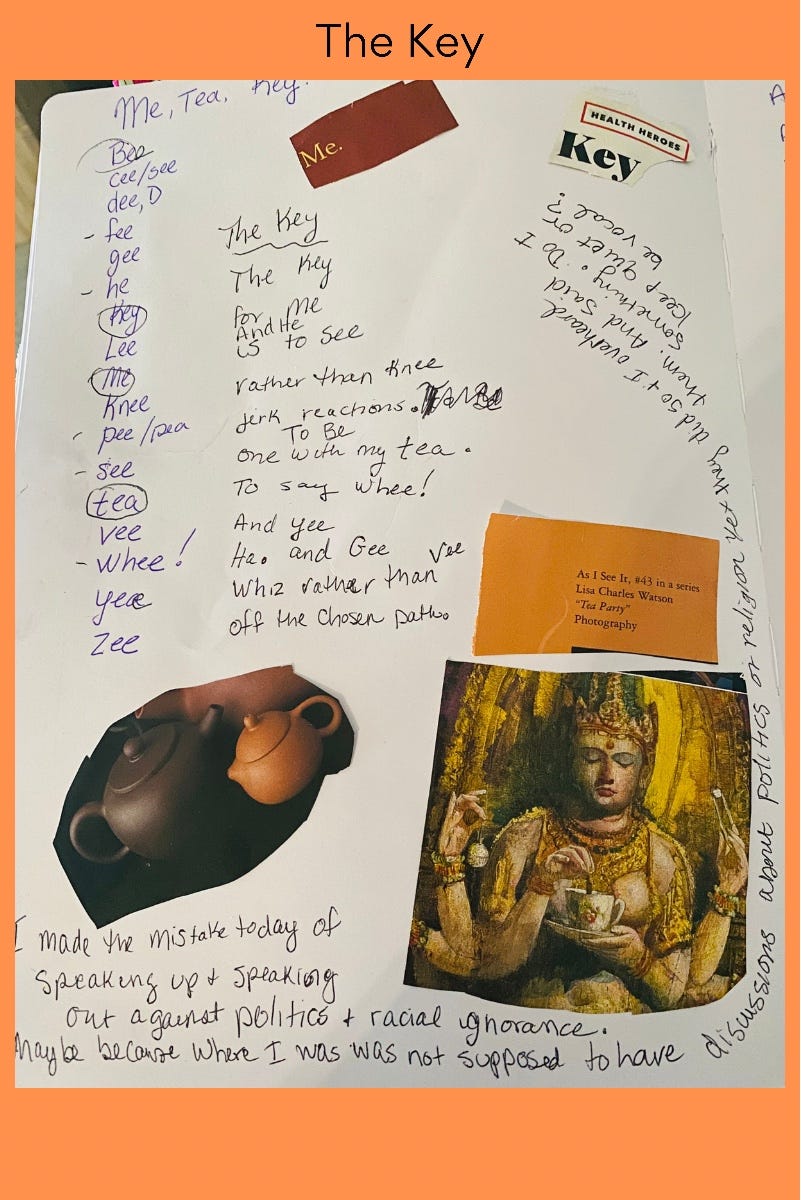 The Key
Me, Tea, Key.
Bee
cee/see
dee, D
- fee
gee
- he
Key
Lee
Me
Knee
- pee/pea
- see
tea
vee
- Whee!
yee
Zee
Me.
HEALTH HEROES
Key
The Key
The Key
for Me
And He
is to see
rather than Knee
jerk reactions.
To Be
one with my tea.
To say whee!
And yee
Ha. and Gee Vee
Whiz rather than
off the chosen path.
As I See It, #43 in a series
Lisa Charles Watson
"Tea Party"
Photography
I made the mistake today of
speaking up + speaking
out against politics + racial ignorance.
Maybe because where I was was not supposed to have
discussions about politics or religion yet they did so + I overheard
them. And said
something. Do I
keep quiet or
be vocal?